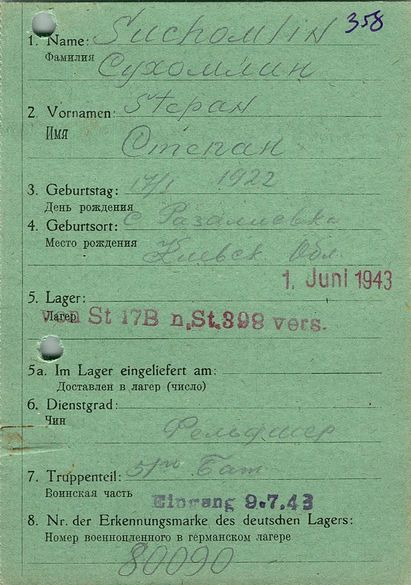 358
1. Name: Suchomlin
Фамилия Сухомлин
2. Vornamen: Stepan
Имя Степан
3. Geburtstag: 17/I 1922
День рождения
4. Geburtsort: С Разалиевка
Место рождения Киевск Обл.
1. Juni 1943
5. Lager:
Лагер
von St 17B n. St. 398 vers.
5a. Im Lager eingeliefert am:
Доставлен в лагер (число)
6. Dienstgrad:
Чин Фельдшер
7. Truppenteil: Бат
Воинская часть
Eingang 9.7.43
8. Nr. der Erkennungsmarke des deutschen Lagers:
Номер военнопленного в германском лагере
80090